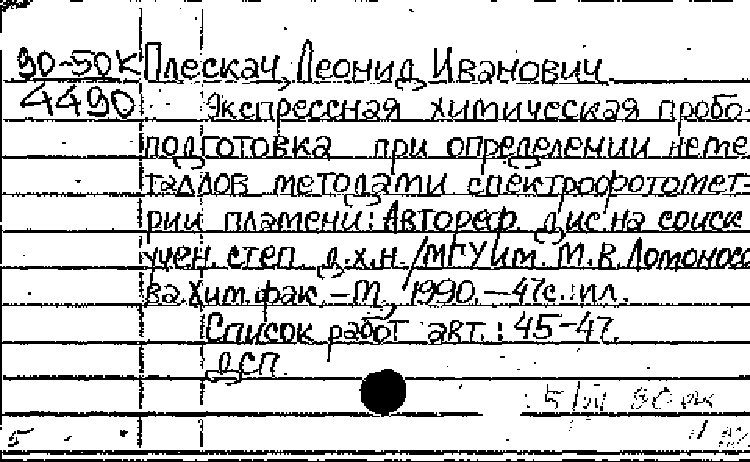 90-50К Плескач, Леонид Иванович
4490 Экспрессная химическая пробо-
подготовка при определении неме-
таллов методами спектрофотомет-
рии пламени: Автореф. дис. на соиск
учен. степ. д.х.н. /МГУ им. М.В. Ломоносо
ва. Хим. фак. - М., 1990. - 47с.: ил.
Список работ авт.: 45-47.
ДСП.
5